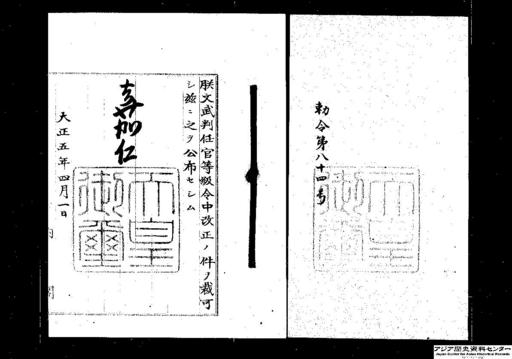 勅令第八十四号
朕文武判任官等級令中改正ノ件ヲ裁可
シ茲ニ之ヲ公布セシム
嘉仁
天皇御璽
大正五年四月一日
内閣
アジア歴史資料センター
Japan Center for Asian Historical Records